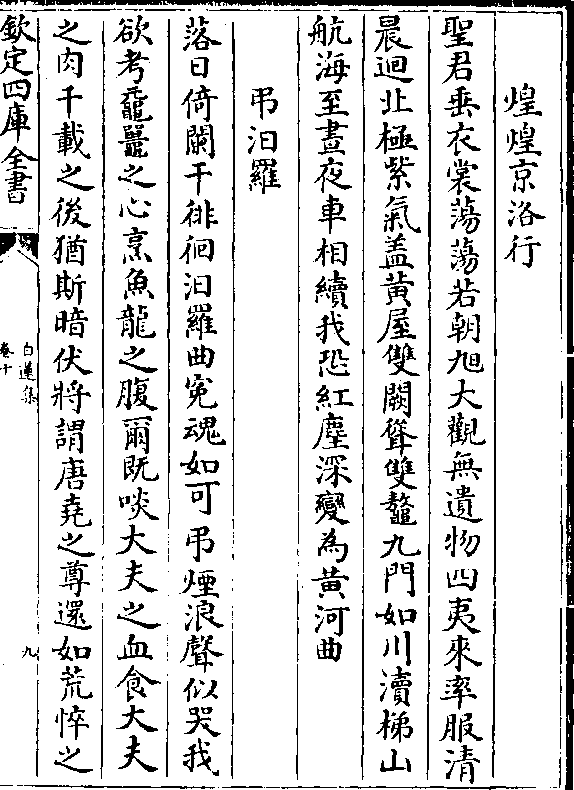 煌煌京洛行
聖君垂衣裳蕩蕩若朝旭大觀無遺物四夷來率服清
晨迴北極紫氣盖黄屋雙闕聳雙鼇九門如川瀆梯山
航海至晝夜車相續我恐紅塵深變為黄河曲
弔汨羅
落日倚闌干徘徊汨羅曲寃魂如可弔煙浪聲似哭我
欲考黿鼉之心烹魚龍之腹爾既啖大夫之血食大夫
之肉千載之後猶斯暗伏將謂唐堯之尊還如荒悴之
欽定四庫全書
白蓮集
卷十
九